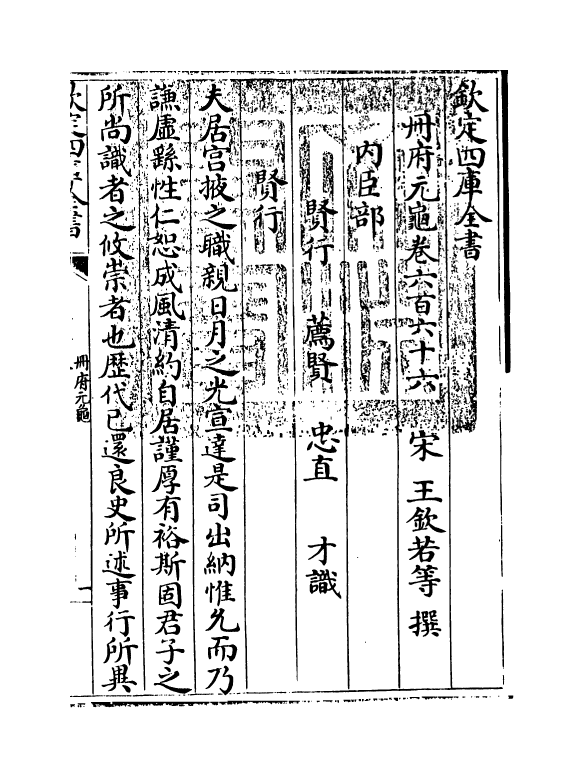 欽定四庫全書
冊府元龜卷六百六十六
宋 王欽若等 撰
內臣部
賢行 薦賢 忠直 才識
賢行
夫居宫掖之職親日月之光宣達是司出納惟允而乃
謙虚繇性仁恕成風清約自居謹厚有裕斯固君子之
所尚識者之攸崇者也歴代已還良史所述事行所異
欽定四庫全書
冊府元龜
一